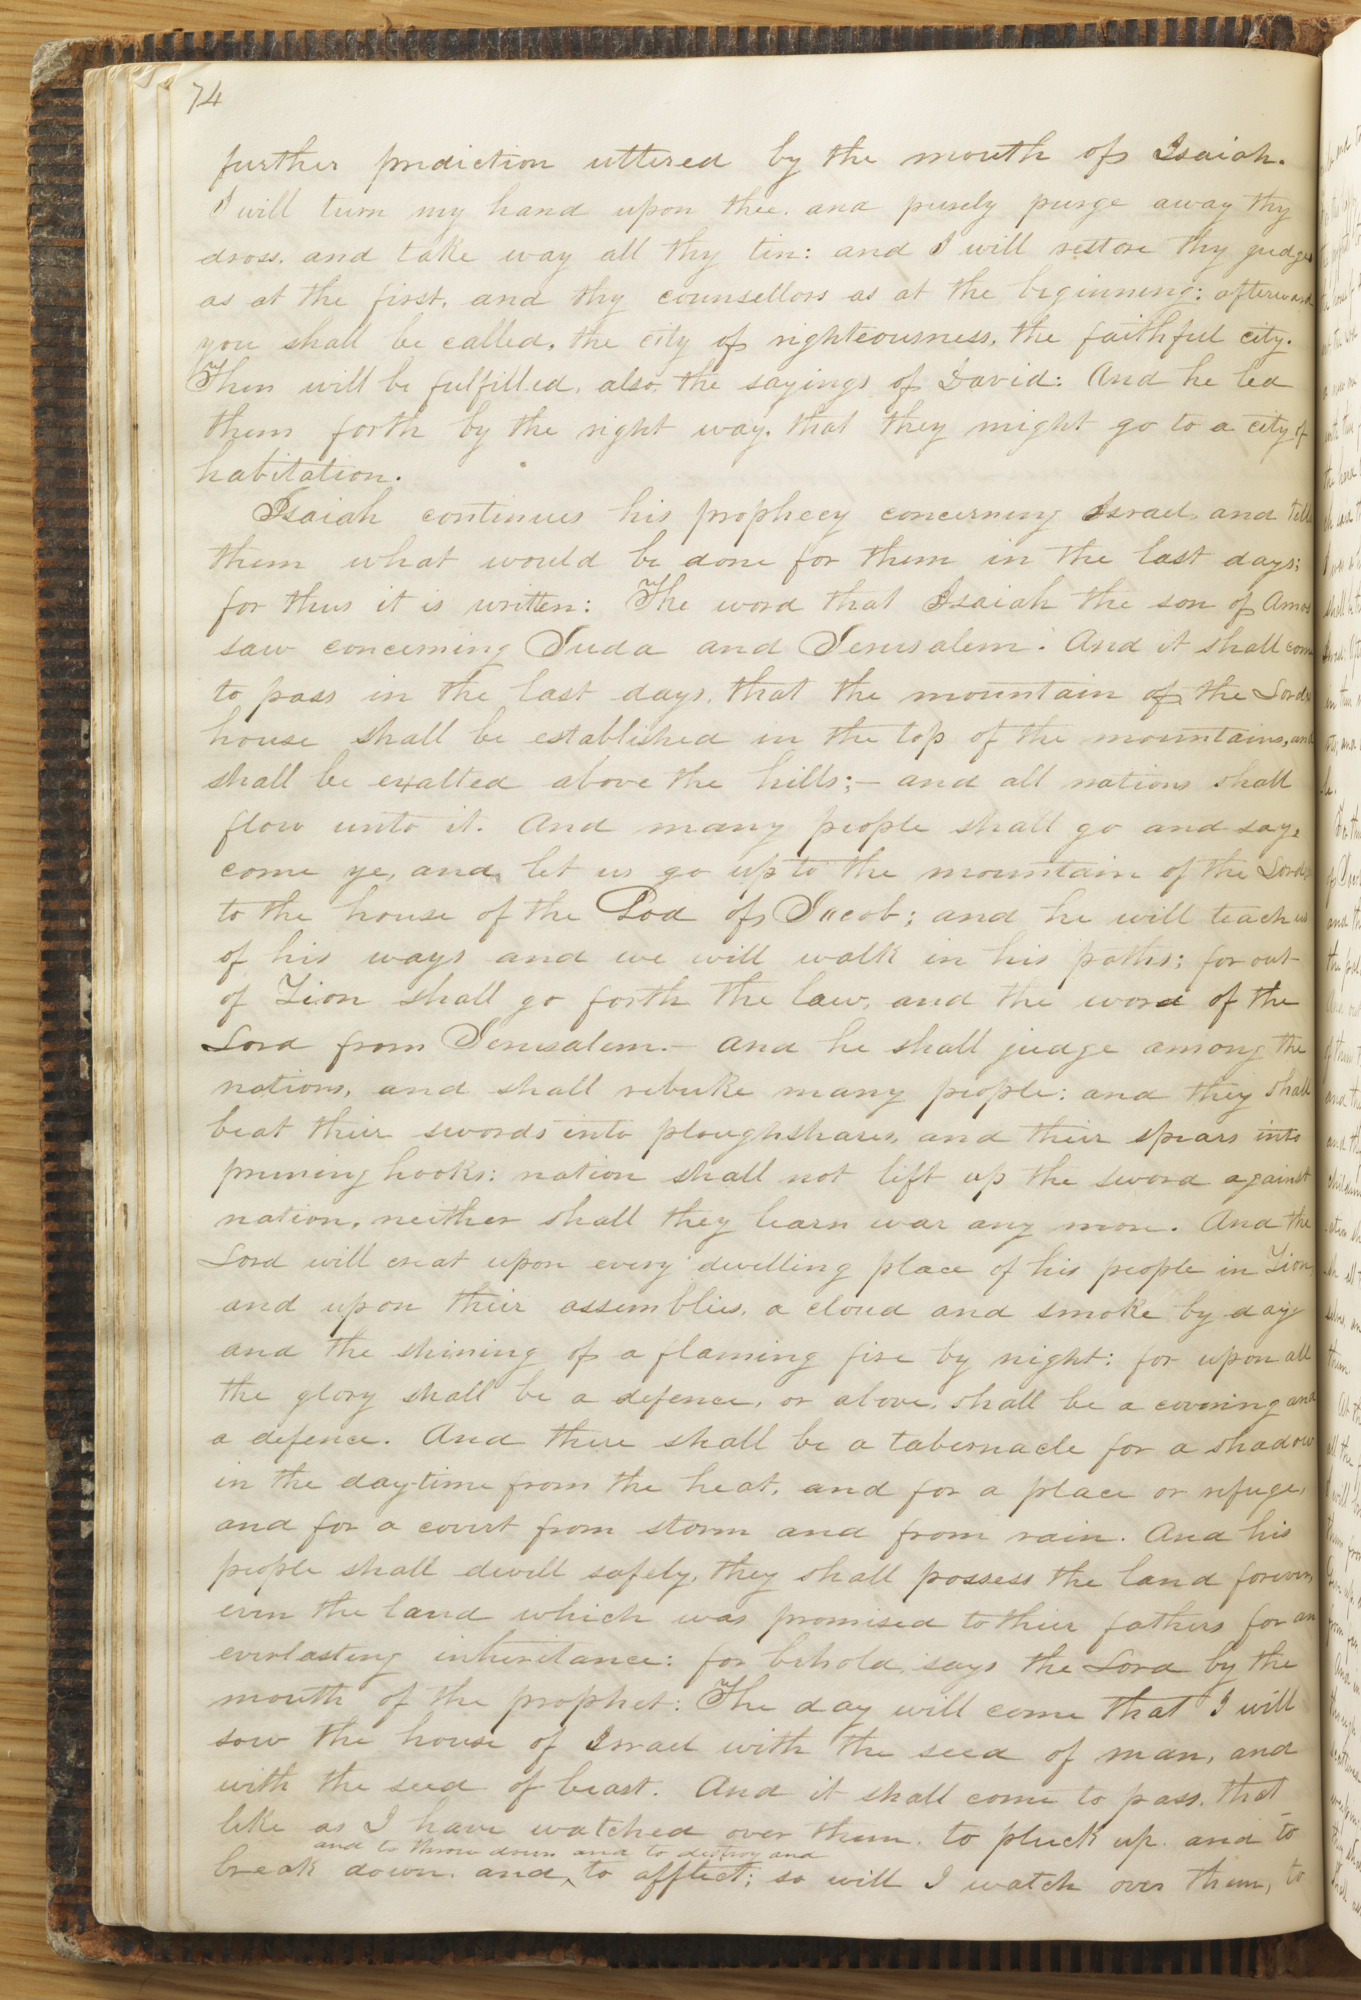 74
further prediction uttered by the mouth of Isaiah.
I will turn my hand upon thee. and purely purge away thy
dross, and take way all thy tin: and I will restore thy judges
as at the first, and thy counsellors as at the beginning: afterward
you shall be called, the city of righteousness, the faithful city.
Then will be fulfilled, also, the sayings of David: And he led
them forth by the right way, that they might go to a city of
habitation.
Isaiah continues his prophecy concerning Israel, and tells
them what would be done for them in the last days;
for thus it is written: The word that Isaiah the son of Amos
saw concerning Juda and Jerusalem. And it shall come
to pass in the last days, that the mountain of the Lords
house shall be established in the top of the mountains, and
shall be exalted above the hills;— and all nations shall
flow unto it. And many people shall go and say,
come ye, and let us go up to the mountain of the Lord,
to the house of the God of Jacob; and he will teach us
of his ways and we will walk in his paths; for out
of Zion shall go forth the law, and the word of the
Lord from Jerusalem.— And he shall judge among the
nations, and shall rebuke many people: and they shall
beat their swords into ploughshares, and their spears into
pruning hooks: nation shall not lift up the sword against
nation, neither shall they learn war any more. And the
Lord will creat upon every dwelling place of his people in Zion,
and upon their assemblies, a cloud and smoke by day
and the shining of a flaming fire by night: for upon all
the glory shall be a defence, or above, shall be a covering and
a defence. And there shall be a tabernacle for a shadow
in the day-time from the heat, and for a place or refuge,
and for a covert from storm and from rain. And his
people shall dwell safely, they shall possess the land forever,
even the land which was promised to their fathers for an
everlasting inheritance: for behold, says the Lord by the
mouth of the prophet: The day will come that I will
sow the house of Israel with the seed of man, and
with the seed of beast. And it shall come to pass, that
like as I have watched over them, to pluck up, and to
and to throw down and to destroy and
break down, and ‸ to afflict; so will I watch over them, to